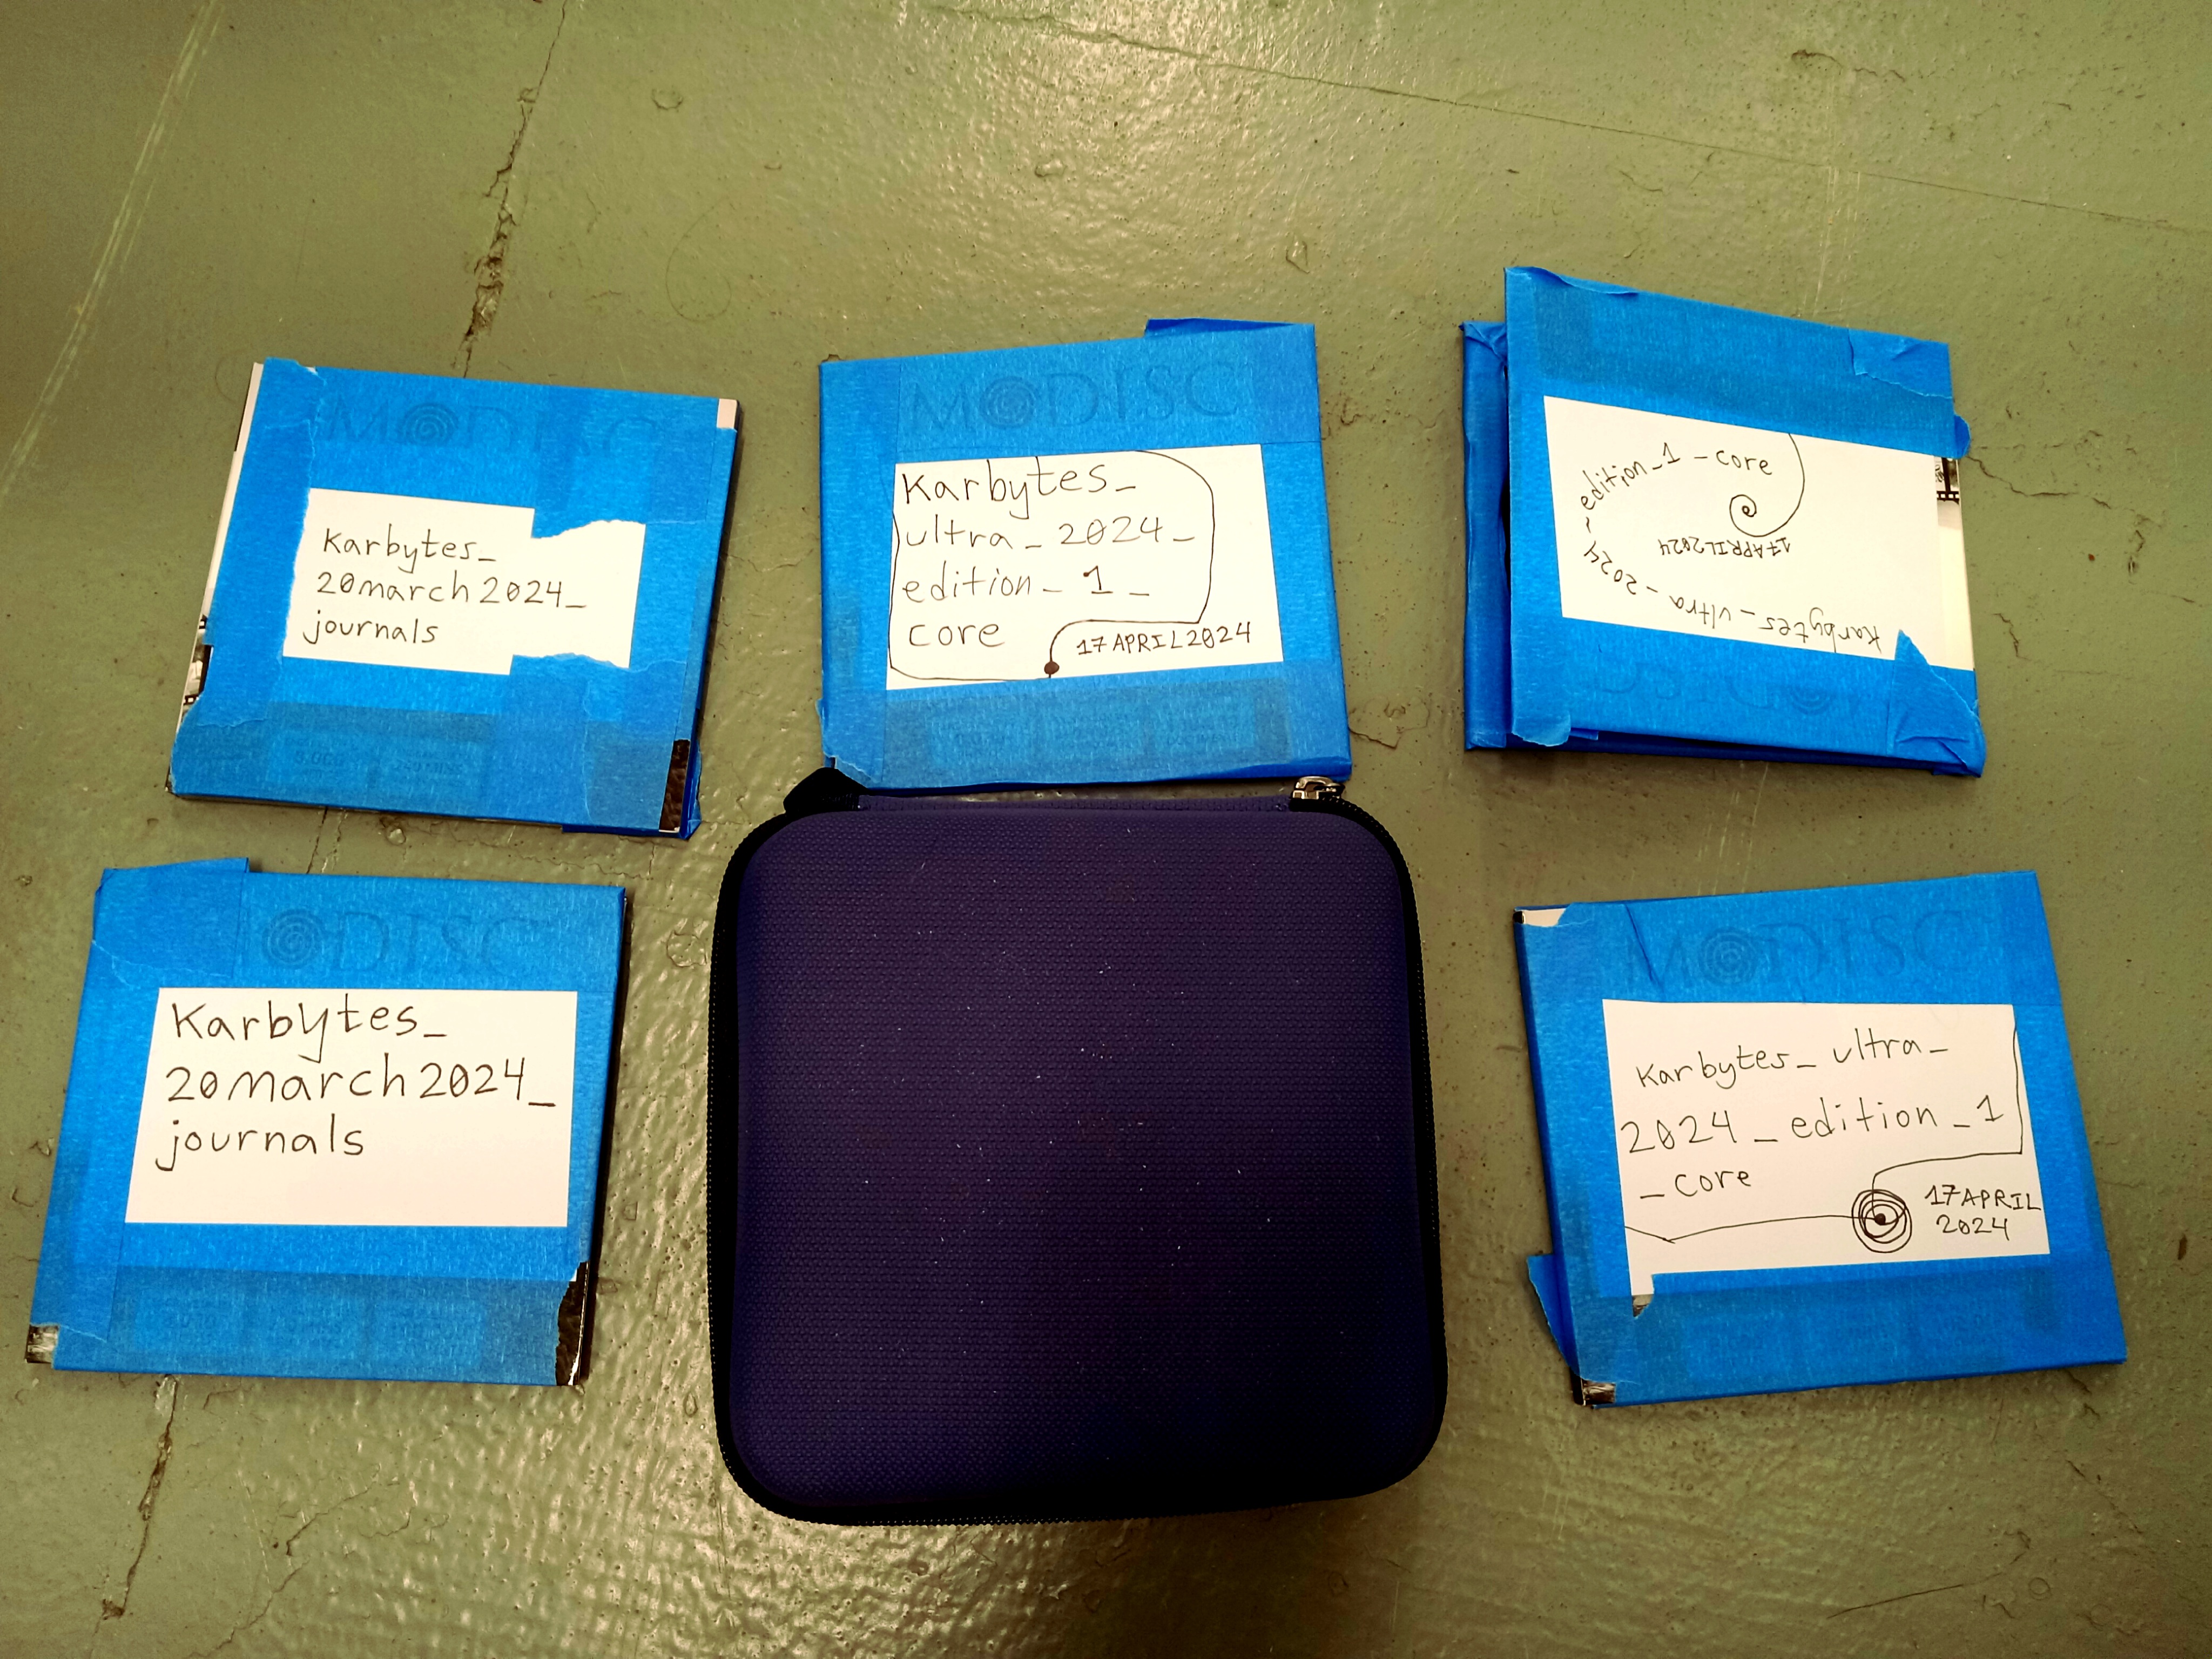 MODISC
Karbytes_
20march2024_
journals
MODISC
Karbytes_
ultra_2024_
edition_1_
core
17APRIL2024
karbytes_ultra_2024_edition_1_core
17APRIL2024
DISC
ODISC
Karbytes_
20march2024_
journals
MODISC
Karbytes_ultra_
2024_edition_1
_core
17APRIL
2024